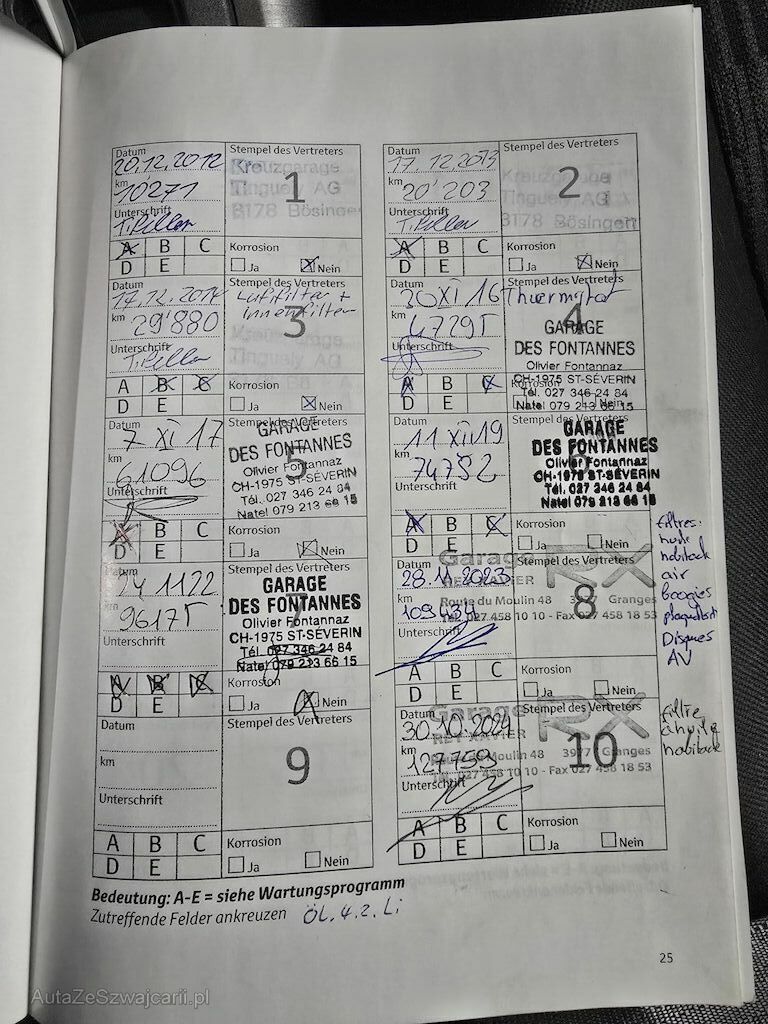 Datum
20.12.2012
km
10271
Unterschrift
T. Piller
Stempel des Vertreters
1
Kreuzgarage
Tinguely AG
3178 Bösingen
A B C
D E
Korrosion
Ja Nein
Datum
17.12.2013
km
20'203
Unterschrift
T. Piller
Stempel des Vertreters
2
Kreuzgarage
Tinguely AG
3178 Bösingen
A B C
D E
Korrosion
Ja Nein
Datum
17.12.2014
km
29'880
Unterschrift
T. Piller
Stempel des Vertreters
Luftfilter +
Innenfilter
3
Tinguely AG
A B C
D E
Korrosion
Ja Nein
Datum
30 XI 16
km
47295
Unterschrift
Stempel des Vertreters
4
GARAGE
DES FONTANNES
Olivier Fontannaz
CH-1975 ST-SÉVERIN
Tél. 027 346 24 84
Natel 079 213 66 15
A B C
D E
Korrosion
Ja Nein
Datum
7 XI 17
km
61096
Unterschrift
Stempel des Vertreters
5
GARAGE
DES FONTANNES
Olivier Fontannaz
CH-1975 ST-SÉVERIN
Tél. 027 346 24 84
Natel 079 213 66 15
A B C
D E
Korrosion
Ja Nein
Datum
11 XII 19
km
74782
Unterschrift
GARAGE
DES FONTANNES
Olivier Fontannaz
CH-1975 ST-SÉVERIN
Tél. 027 346 24 84
Natel 079 213 66 15
A B C
D E
Korrosion
Ja Nein
Datum
24 11 22
km
96175
Unterschrift
Stempel des Vertreters
7
GARAGE
DES FONTANNES
Olivier Fontannaz
CH-1975 ST-SÉVERIN
Tél. 027 346 24 84
Natel 079 213 66 15
A B C
D E
Korrosion
Ja Nein
Datum
28.11.2023
km
109434
Unterschrift
Stempel des Vertreters
8
Garage RX
REY XAVIER
Route du Moulin 48 3977 Granges
Tél. 027 458 10 10 - Fax 027 458 18 53
A B C
D E
Korrosion
Ja Nein
filtres:
huile
habitacle
air
boogies
Disques
AV
Datum
km
Unterschrift
Stempel des Vertreters
9
A B C
D E
Korrosion
Ja Nein
Datum
30.10.2024
km
127759
Unterschrift
Stempel des Vertreters
10
Garage RX
REY XAVIER
Route du Moulin 48 3977 Granges
Tél. 027 458 10 10 - Fax 027 458 18 53
A B C
D E
Korrosion
Ja Nein
filtre
à huile
habitacle
Bedeutung: A-E = siehe Wartungsprogramm
Zutreffende Felder ankreuzen ÖL.4.2.Li
25
AutaZeSzwajcarii.pl